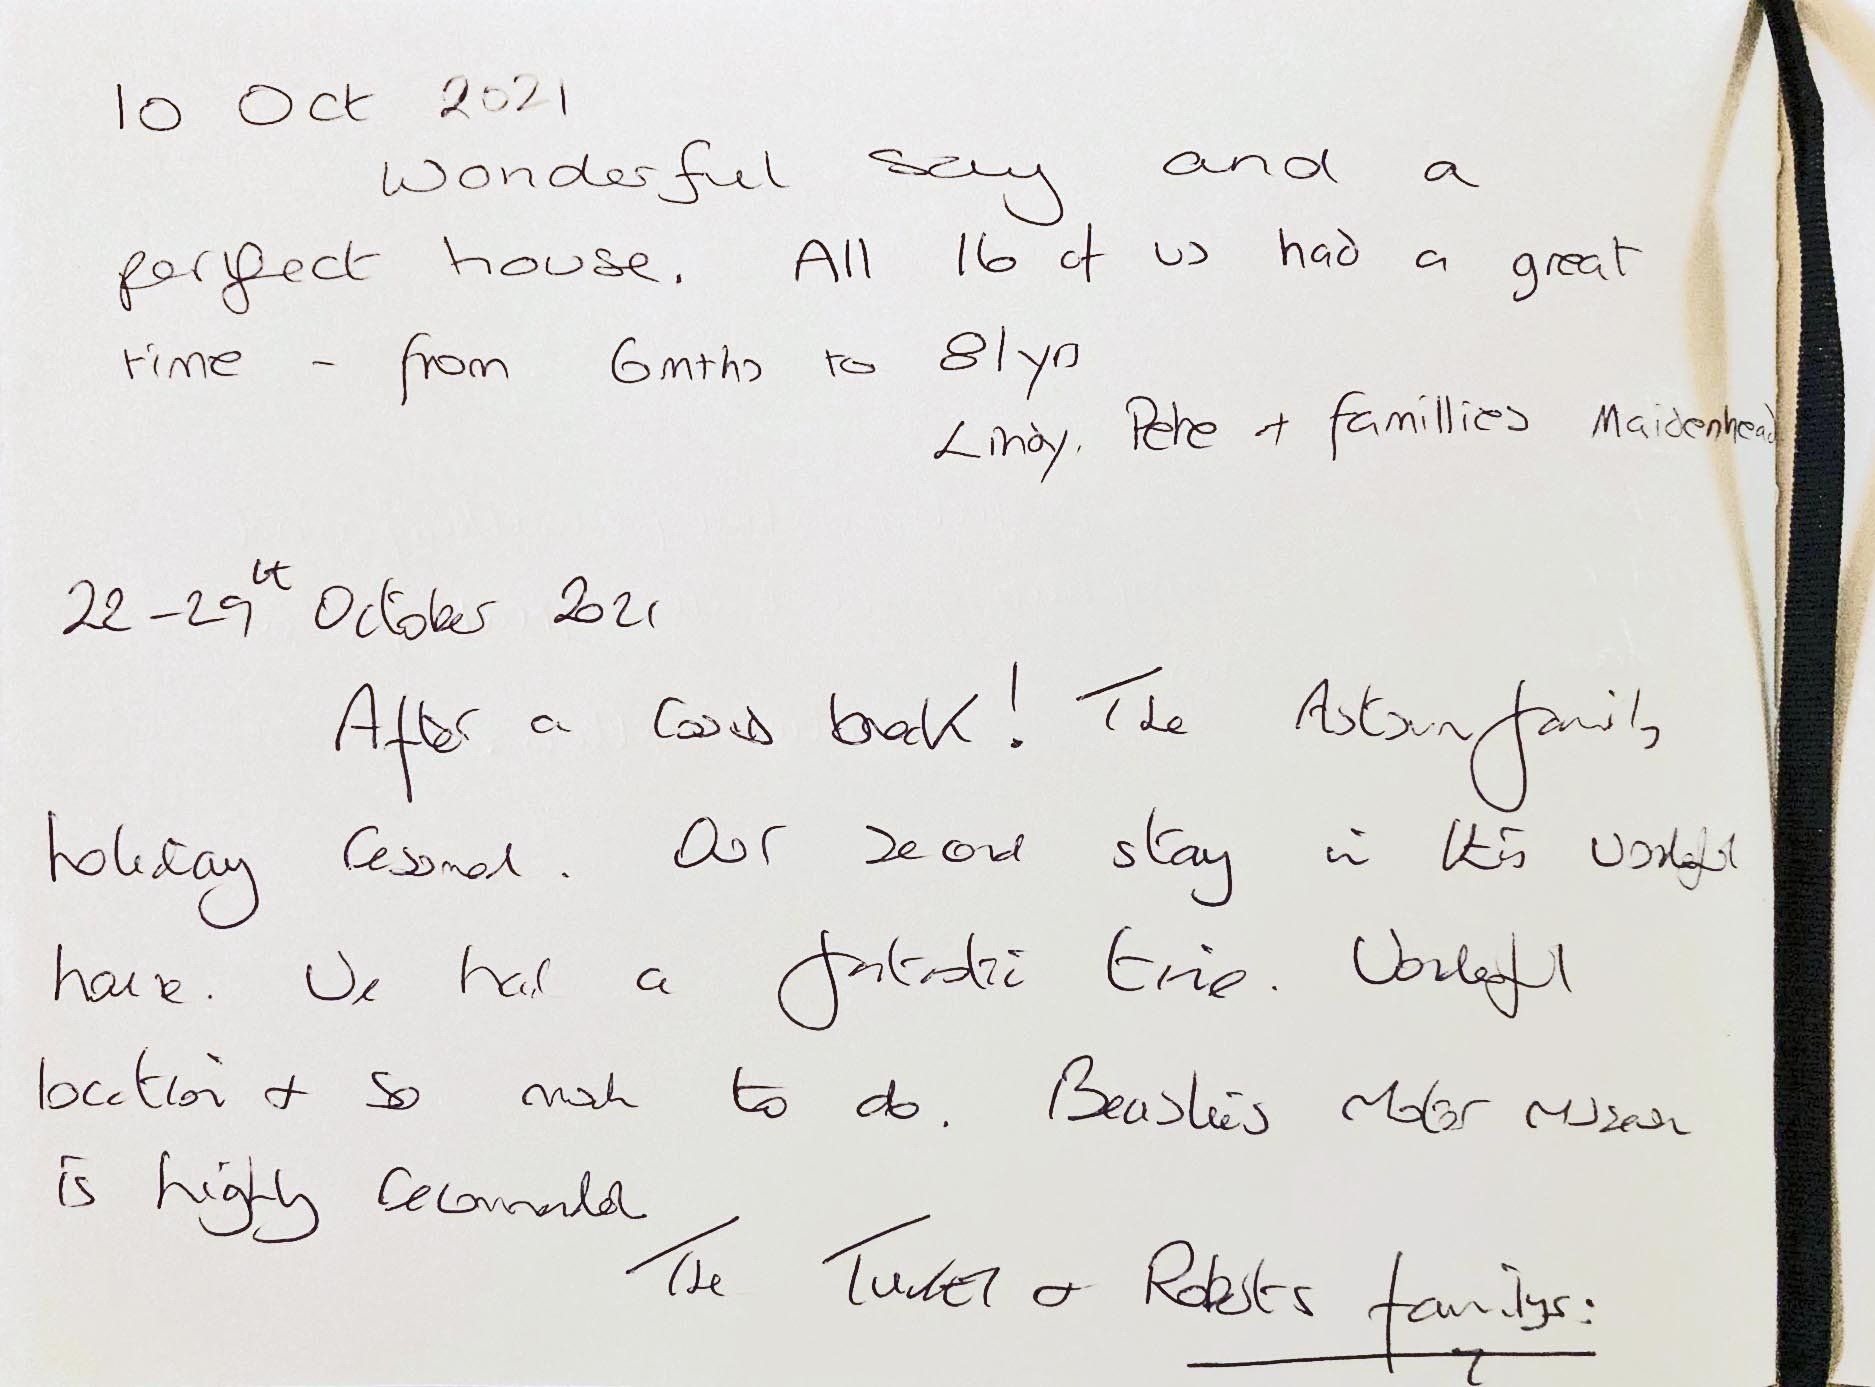 10 Oct 2021
Wonderful say and a
perfect house. All 16 of us had a great
time - from 6mths to 81yrs
Lindy, Pete + famillies Maidenhead
22-29th October 2021
After a Covid break! The Autumn family
holiday resumed. Our second stay in this wonderful
house. We had a fantastic time. Wonderful
location & so much to do. Beaulieu's Motor Museum
is highly recommended
The & Roberts familys: